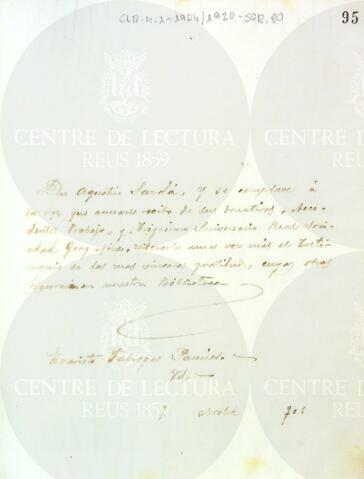 CLR-4.1-1904/1920-SOR,80
95
CENTRE DE LECTURA
REUS 1859
Don Agustín Sardá, y se complace á
la vez que acusarle recibo de sus donativos, Acci-
dentes Trabajo, y, Vigésimo Aniversario Real Soci-
edad Geográfica, reiterarle una vez más el testi-
monio de las mas sinceras gratitud, cuyas obras
figuraran en nuestra Biblioteca
Evaristo Fabregas Pamies
CENTRE DE LECTURA
REUS 1859
9 octubre 906